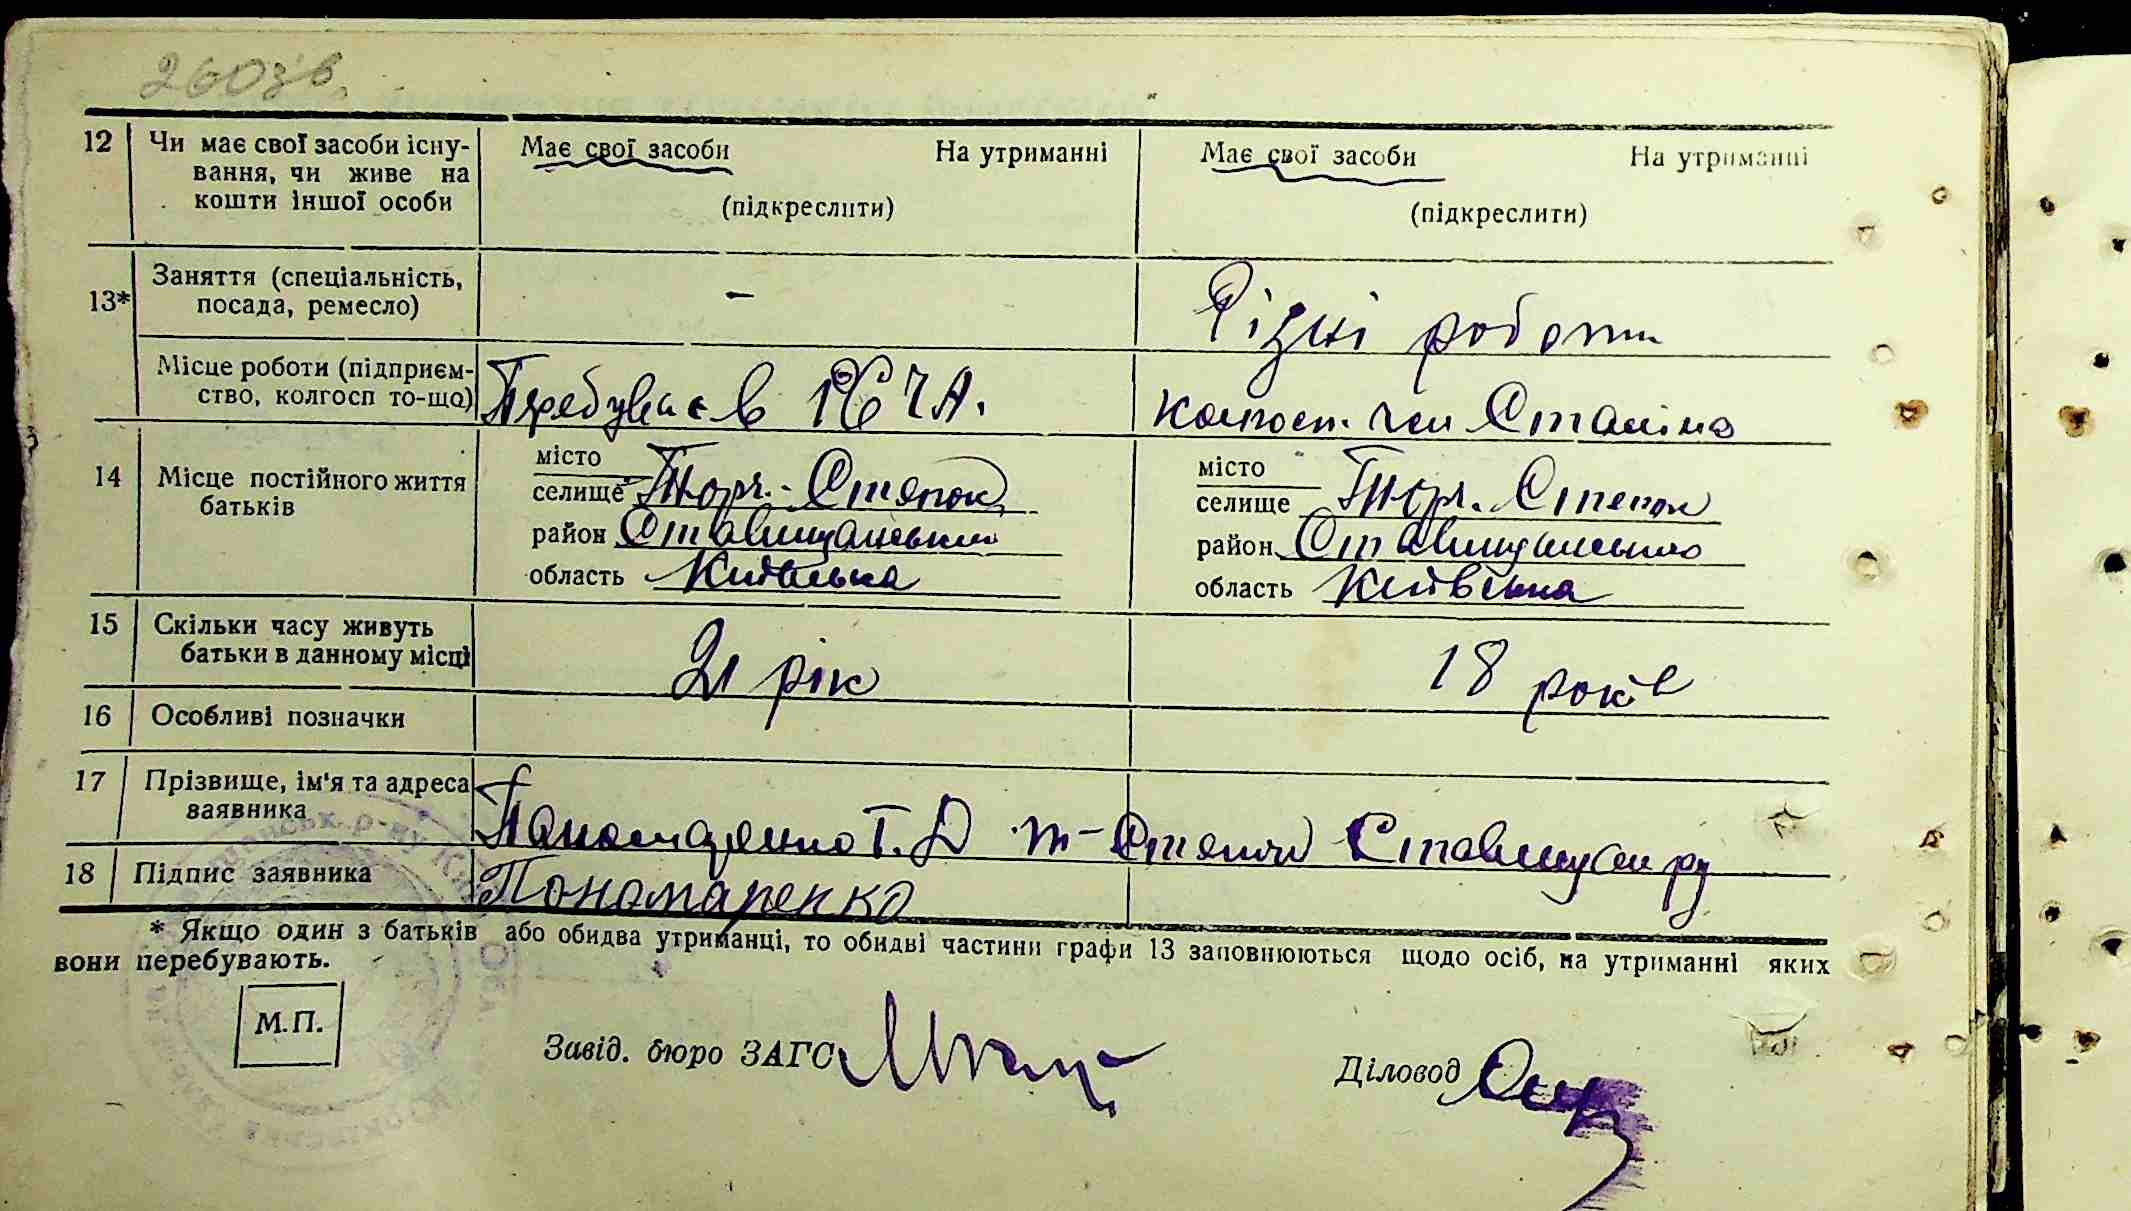 2603в.
12 Чи має свої засоби існу- Має свої засоби На утриманні Має свої засоби На утриманні
вання, чи живе на
кошти іншої особи (підкреслити) (підкреслити)
13* Заняття (спеціальність, - Різні роботи
посада, ремесло)
Місце роботи (підприєм- Перебуває в РСЧА. колгосп. ім Сталіна
ство, колгосп то-що)
14 Місце постійного життя місто місто
батьків селище Торч.-Степок селище Торч. Степок
район Ставищанський район Ставищанського
область Київська область Київська
15 Скільки часу живуть 21 рік 18 років
батьки в данному місці
16 Особливі позначки
17 Прізвище, ім'я та адреса
заявника Пономаренко Т. Д т-Степок Ставищан ру
18 Підпис заявника Пономаренко
* Якщо один з батьків або обидва утриманці, то обидві частини графи 13 заповнюються щодо осіб, на утриманні яких
вони перебувають.
М.П.
Завід. бюро ЗАГС Діловод